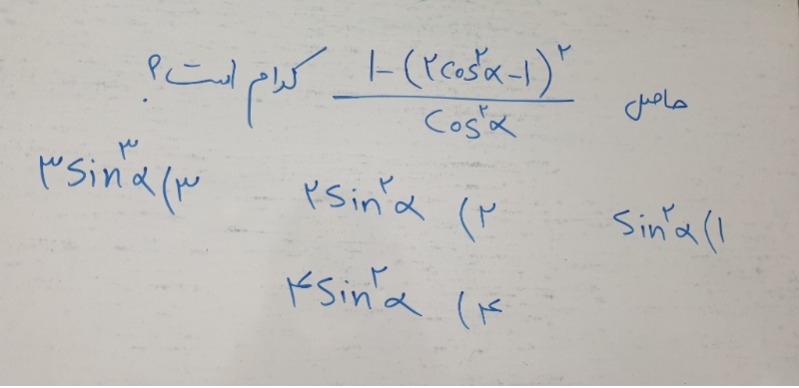 حاصل (1-(۲cos²α-1)²)/(cos²α) کدام است؟
1) sin²α ۲) ۲sin²α ۳) ۳sin³α
۴) ۴sin²α